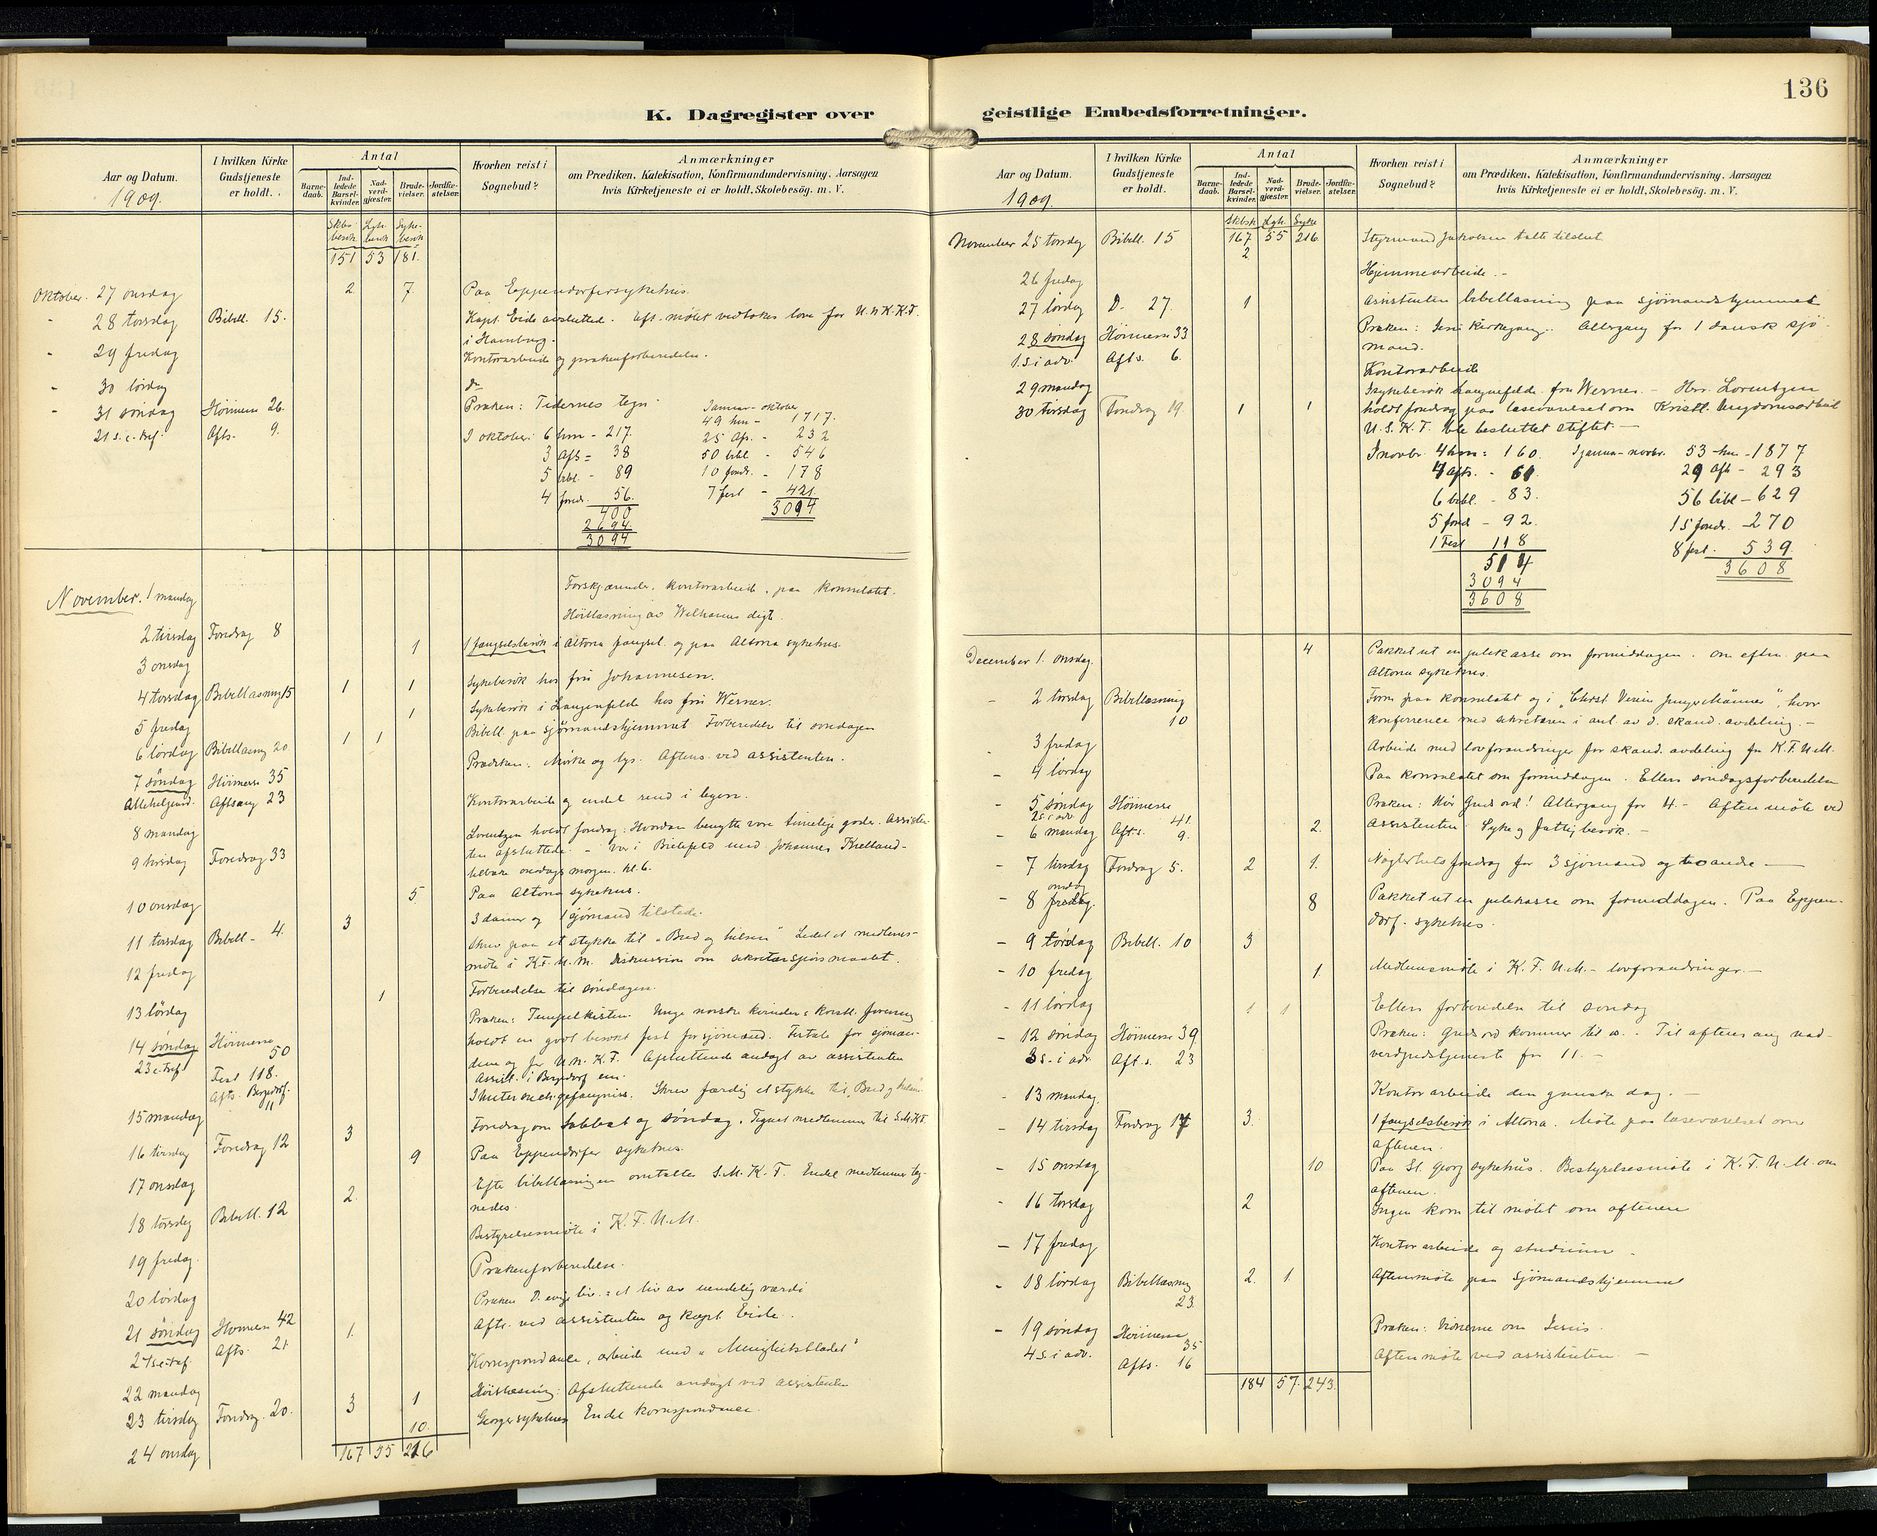 136
K. Dagregister over
geistlige Embedsforretninger.
Aar og Datum.
1909.
I hvilken Kirke
Gudstjeneste
er holdt.
Antal
Barne-
daab.
Ind-
ledede
Barsel-
kvinder.
Nad-
verd-
gjæster.
Brude-
vielser.
Jordfæ-
stelser.
Hvorhen reist i
Sognebud?
Anmærkninger
om Prædiken, Katekisation, Konfirmandundervisning, Aarsagen
hvis Kirketjeneste ei er holdt, Skolebesøg. m. V.
Skbs-
besøk
besøk
Syke-
besøk
151 53 181.
Oktober. 27 onsdag 2. 7. Paa Eppendorfersykehus.
" 28 torsdag Bibell. 15. Kapt. Eide avsluttet. Aft. møtet vedtokes love for
i Hamburg.
" 29 fredag Kontorarbeide og prækenforberedelse.
" 30 lördag do
" 31 söndag Höimesse 26. Præken: Tidernes tegn.
21 s. e. tref. Afts. 9.
I oktober: 6 hm - 217.
3 Afs = 38
5 bbl. - 89
4 fordr. 56.
400
2694
3094
Januar - oktober
49 hm - 1717.
25 Afs. - 232
50 bibl - 546
10 fordr. - 178
7 fest - 421
3094
November. 1 mandag kontorarbeide, paa konsulatet.
Höitlæsning av Welhavens digt.
2 tirsdag Fordrag 8 1 1 fængselsbesøk i Altona fængsel og paa Altona sykehus.
3 onsdag
4 torsdag Bibellæsning 15 1 1 Sykebesøk hos fru Johannesen.
1 Sykebesøk i Langenfelde hos fru Werner.
5 fredag Bibell. paa sjømandshjemmet. Forberedelse til søndagen
6 lördag Bibellæsning 20 1 1
7 söndag Höimesse 35 Prædiken: Mørke og lys. Aftens. ved assistenten.
Allehelgensd. Aftsang 23
8 mandag Kontorarbeide og endel rend i byen.
9 tirsdag Foredrag 33 Lorentzen holdt fordrag: Hvordan benytte vore timelige goder. Assisten-
ten afsluttede. - Var i Bielefeld med Johannes Kielland -
tilbake onsdags morgen. kl. 6.
10 onsdag 5 Paa Altona sykehus.
11 torsdag Bibell - 4. 3 3 damer og 1 sjømand tilstede.
12 fredag Skrev paa et stykke til "Bud og hilsen" Ledet et medlems-
møte i K.F.U.M. Diskussion om sekretærspørsmaalet.
13 lördag 1 Forberedelse til søndagen.
14 söndag Höimesse 50 Præken: Tempelskatten. Unge norske kvinders kristl. forening
23 e. tref Fest 118. holdt en godt besøkt fest for sjømænd. Fortale for sjømæn-
Afts. Bergedorf. 11 dene og for U.N.K.F. Afsluttende andagt av assistenten
Assist. i Bergedorf em.
15 mandag Skrev færdig et stykke til "Bud og hilsen"
16 tirsdag Fordrag 12 3 Fordrag om sabbat og söndag. Tegnet medlemmer til S.M.K.F.
17 onsdag 9 Paa Eppendorfer sykehus.
18 torsdag Bibell. 12 2. Efter bibellæsningen omtaltes S.M.K.F. Endel medlemmer teg-
nedes.
19 fredag. Bestyrelsesmøte i K.F.U.M.
20 lördag Prækenforberedelse.
21 söndag Höimesse 42 1. Præken: D. evige liv: et liv av uendelig værdi
24 s. e. tref. Afts. 21 Afts. ved assistenten og kapt. Eide.
22 mandag Korrespondance, arbeide med "Menighetsbladet"
23 tirsdag Fordrag. 20. 3 1 Höitlæsning: Afsluttende andagt ved assistenten
24 onsdag 10. Georgssykehus Endel korrespondance.
167 55 216
Aar og Datum.
1909.
I hvilken Kirke
Gudstjeneste
er holdt.
Antal
Barne-
daab.
Ind-
ledede
Barsel-
kvinder.
Nad-
verd-
gjæster.
Brude-
vielser.
Jordfæ-
stelser.
Hvorhen reist i
Sognebud?
Anmærkninger
om Prædiken, Katekisation, Konfirmandundervisning, Aarsagen
hvis Kirketjeneste ei er holdt, Skolebesøg. m. V.
Skbsk Syke
November 25 torsdag Bibell. 15 167 55 216. Styrmand Jakobsen talte tilslut
2
26 fredag Hjemmearbeide. -
27 lördag D. 27. 1 Assistenten bibellæsning paa sjømandshjemmet
28 söndag Höimesse 33 Præken: Jesu kirkegang. Altergang for 1 dansk sjö-
1 s. i adv. Afts. 6. mand.
29 mandag Kontorarbeide
30 tirsdag Fordrag 19. 1 1 Sykebesøk Langenfelde fru Werner. - Hr. Lorentzen
holdt fordrag paa læseværelset om Kristl. Ungdomsarbeid
U.S.K.F. ble besluttet stiftet. -
I novbr. 4 hm = 160.
4 Afts. - 61
6 bibl. - 83.
5 fordr - 92.
1 Fest 118
514
3094
3608
I januar - novbr. 53 - hm - 1877
29 Aft - 293
56 bibl - 629
15 fordr. - 270
8 fest. - 539.
3608
December 1. onsdag. 4 Pakket ut en julekasse om formiddagen. Om eftm. paa
Altona sykehus.
- 2 torsdag Bibellæsning 10 Form. paa konsulatet og i "Christ. Verein Junger Männer", hvor
konferrence med sekretæren i anl. av d. skand. avdeling. -
- 3 fredag Arbeide med lovforandringer for skand. avdeling for K.F.U.M.
- 4 lördag Paa konsulatet om formiddagen. Ellers søndagsforberedelse
- 5 söndag Höimesse 41 Præken: Hör Guds ord! Altergang for 4. - Aftenmøte ved
2 s. i adv Afts. 9. assistenten.
- 6 mandag 2. Syke og Fattigbesøk. -
- 7 tirsdag Fordrag 5. 2 1. fordrag for 3 sjømænd og to andre -
- 8 onsdag 8 Pakket ut en julekasse om formiddagen. Paa Eppen-
dorf. sykehus.
- 9 torsdag Bibell. 10 3
- 10 fredag 1. Medlemsmøte i K.F.U.M. - lovforandringer. -
- 11 lördag 1 1 Ellers forberedelse til søndag
- 12 söndag Höimesse 39 Præken: Guds ord kommer til os. Til aftensang nad-
3 s. i adv Aft. s. 23 verdgudstjeneste for 11. -
- 13 mandag. Kontorarbeide den ganske dag. -
- 14 tirsdag Fordrag 17 3. 1 fængselsbesøk i Altona. Møte paa læseværelset om
aftenen.
- 15 onsdag 10 Paa St. Georg sykehus. Bestyrelsesmøte i K.F.U.M. om
aftenen.
- 16 torsdag 2 Ingen kom til mötet om aftenen
- 17 fredag Kontorarbeide og studium -
- 18 lördag Bibellæsning 23. 2. 1. Aftenmøte paa Sjömandshjemmet
- 19 söndag Höimesse 35 Præken: Vidnerne om Jesus.
4 s. i adv. Afts. 16 Aftenmøte ved assistenten -
184 57. 243.